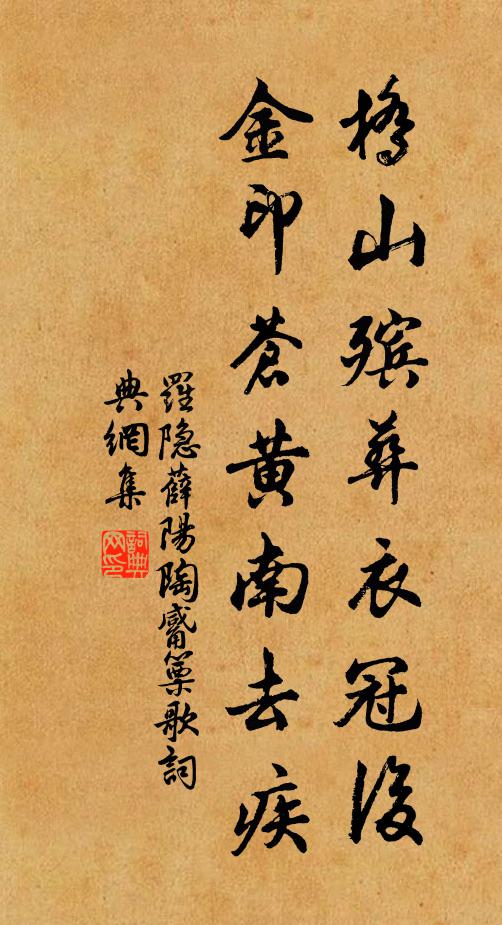 橋山殯葬衣冠後
金印蒼黄南去疾
羅隐薛陽陶觱篥歌詞
典網集
詞典
网印